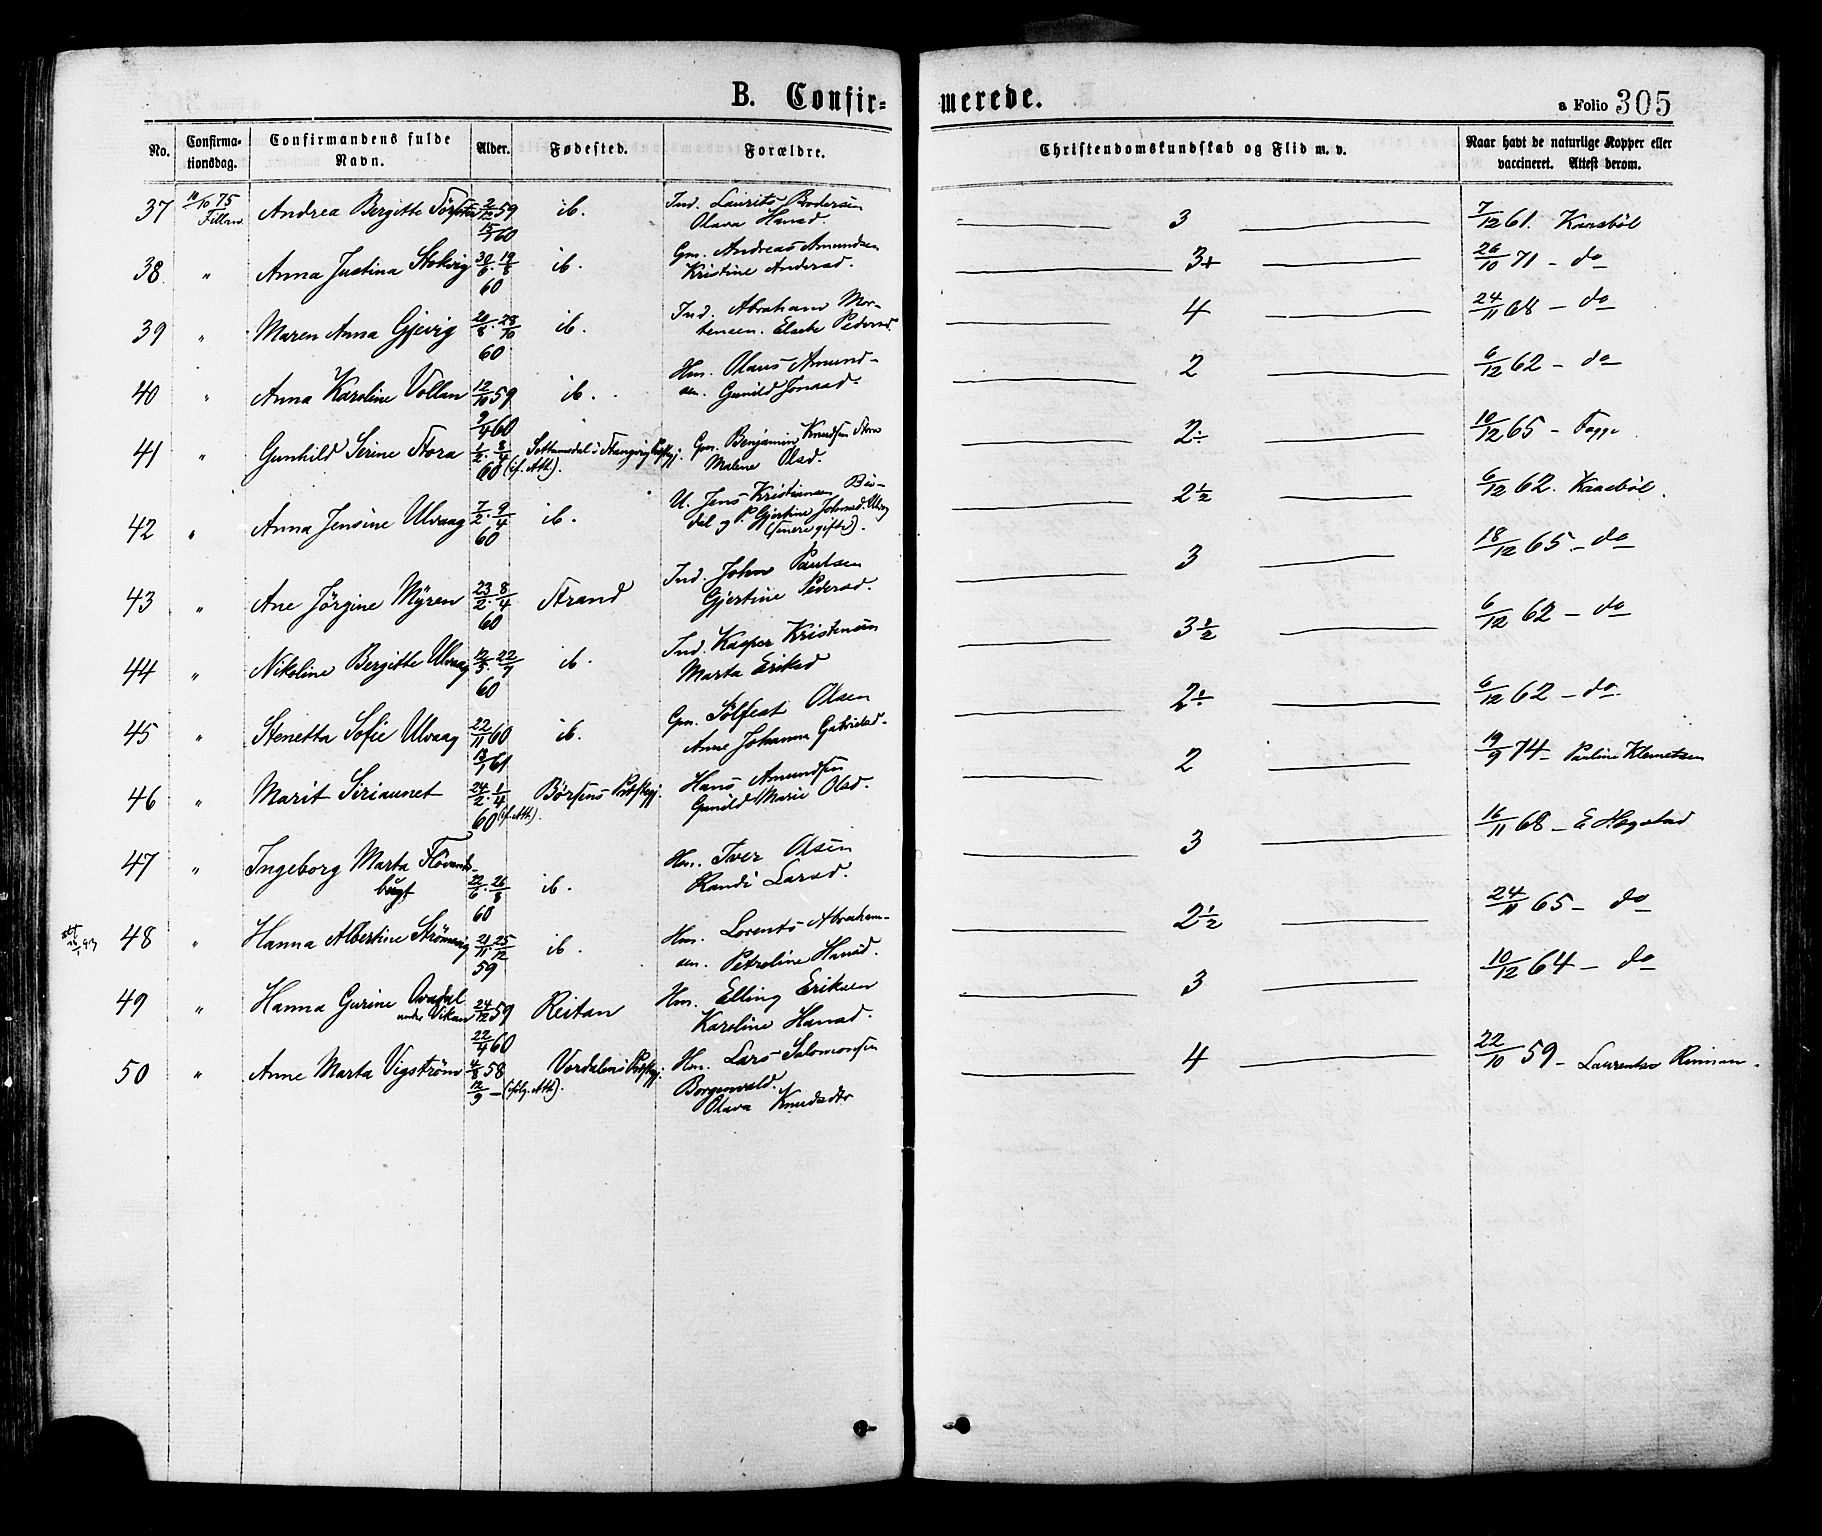 B. Confir- merede. a Folio 305
No. Confirma-tionsdag. Confirmandens fulde Navn. Alder. Fødested. Forældre. Christendomskundskab og Flid m. v. Naar havt de naturlige Kopper eller vaccineret. Attest derom.
37 10/10 75 Fillan Andrea Bergitte 2/12 59 15/1 60 ib. Ind. Laurits
Olava Hansd. 3 7/12 61.
38 " Anna Justina Stokvig 30/6. 19/8 60 ib. Gm. Andreas Amundsen
Kristine Andersd. 3+ 26/10 71 - do
39 " Maren Anna Gjevig 20/8. 28/10 60 ib. Ind. Abraham Mor-
tensen. Elsebe Pedersd. 4 24/11 68 - do
40 " Anna Karoline Vollan 12/10 59 9/4 60 ib. Hm. Olaus Amund-
sen. Gunild Jonasd. 2 6/12 62 - do
41 " Gunhild Serine Stora 1/2. 8/4 60 (if. Att). Gm. Benjamin Knudsen Stora
Malene Olsd. 2÷ 10/12 65 - Fagge
42 " Anna Jensine Ulvaag 7/2. 9/4 60 ib. U. Jens Kristiansen
dal og P. Gjertine Johnsd. Ulvag
(senere gifte). 2½ 6/12 62. Kaasbøl.
43 " Ane Jørgine Myren 23/2. 8/4 60 Strand Ind. John Paulsen
Gjertine Pedersd. 3 18/12 65 - do
44 " Nikoline Bergitte Ulvaag 12/5. 22/7 60 ib. Ind. Kasper Kristensen
Marta Eriksd 3½ 6/12 62 - do
45 " Stenetta Sofie Ulvaag 22/11 60 13/1 61 ib. Gm. Sølfest Olsen
Anne Johanna Gabrielsd. 2÷ 6/12 62 - do.
46 " Marit Siriaunet 24/2. 1/4 60 (if. Att). Børsens Præstegj. Hans Amundsen
Gunild Marie Olsd. 2 19/9 74 - Pauline Klemetsen
47 " Ingeborg Marta Fløvands-
bugt 22/6. 26/8 60 ib. Hm. Iver Olsen
Randi Larsd. 3 16/11 68 - E Hogstad
48 " Hanna Albertine Strømvig 21/11. 25/12 59 ib. Hm. Lorents Abraham-
sen. Petroline Hansd. 2½ 24/11 65 - do
49 " Hanna Gurine
under Vikan 24/12 59 22/4 60 Reitan Hm. Elling Eriksen
Karoline Hansd. 3 10/12 64 - do
50 " Anne Marta Vigstrøm 4/8 58 12/9 - (ifølg. Att). Værdalens Præstegj. Hm. Lars Salomonsen
Borgenvald.
Olava Knudsdtr 4 22/10 59 - Laurentse